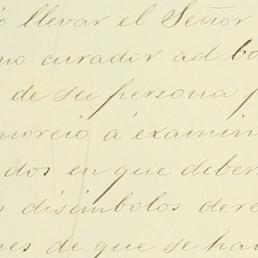 ó llevar el Señor
mo curador ad bo
de su persona y
moreió á examin
dos en que deber
s disímbolos dere
nes de que se hab